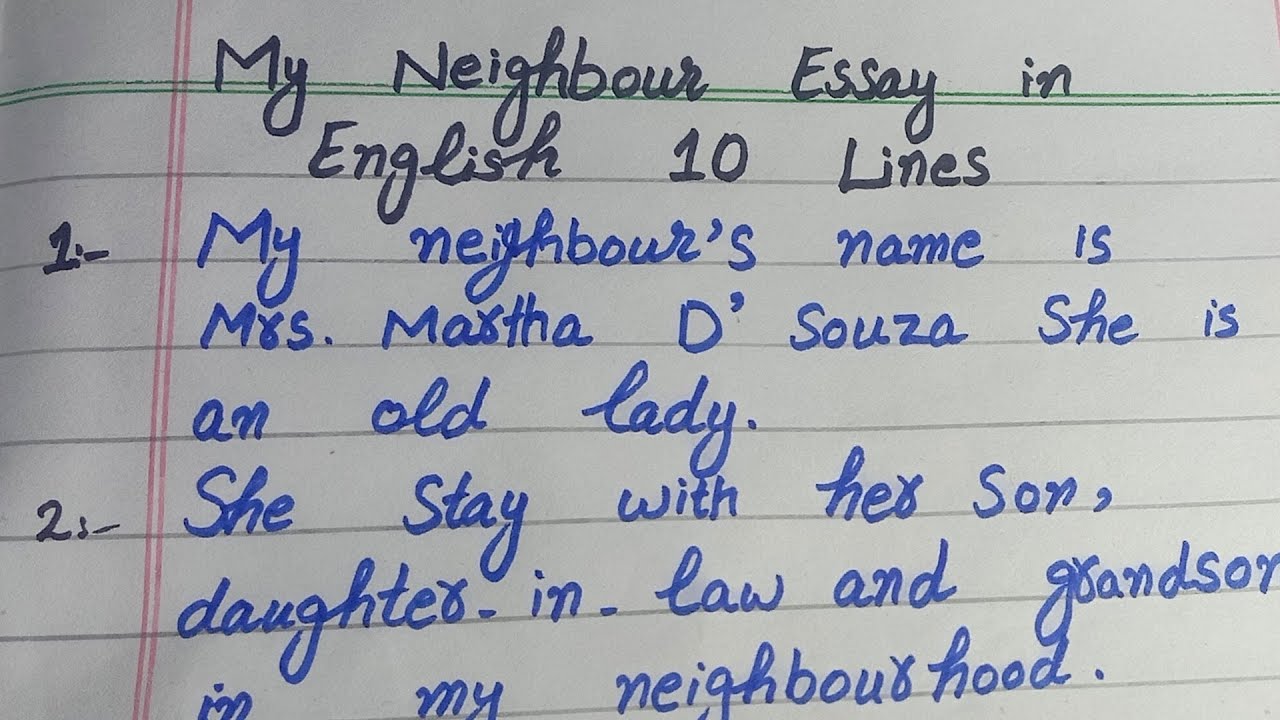 My Neighbour Essay in
English 10 Lines
1:- My neighbour's name is
Mrs. Martha D' Souza She is
an old lady.
2:- She Stay with her Son,
daughter-in-law and grandson
in my neighbourhood.